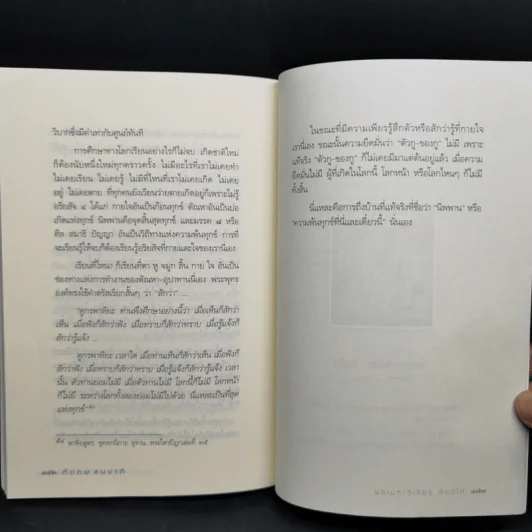 วิบากซึ่งมีค่าเท่ากับศูนย์ทันที
การศึกษาทางโลกเรียนอย่างไรก็ไม่จบ เกิดชาติใหม่
ก็ต้องนับหนึ่งใหม่ทุกคราวครั้ง ไม่มีอะไรที่เราไม่เคยทำ
ไม่เคยเรียน ไม่เคยรู้ ไม่มีที่ไหนที่เราไม่เคยเกิด ไม่เคย
อยู่ ไม่เคยตาย ที่ทุกคนยังเวียนว่ายตายเกิดอยู่ก็เพราะไม่รู้
อริยสัจ ๔ ได้แก่ กายใจอันเป็นก้อนทุกข์ ตัณหาอันเป็นบ่อ
เกิดแห่งทุกข์ นิพพานคือจุดสิ้นสุดทุกข์ และมรรค ๘ หรือ
ศีล สมาธิ ปัญญา อันเป็นวิถีทางแห่งความพ้นทุกข์ การที่
จะเรียนรู้ให้จบก็ต้องเรียนรู้อริยสัจที่กายและใจของเรานี่เอง
เรียนที่ไหน? ก็เรียนที่ตา หู จมูก ลิ้น กาย ใจ อันเป็น
ช่องทางแห่งการทำงานของตัณหา-อุปาทานนี่เอง พระพุทธ
องค์ทรงใช้คำตรัสเรียกสั้นๆ ว่า "สักว่า" ...
"ดูกรพาหิยะ ท่านพึงศึกษาอย่างนี้ว่า เมื่อเห็นก็สักว่า
เห็น เมื่อฟังก็สักว่าฟัง เมื่อทราบก็สักว่าทราบ เมื่อรู้แจ้งก็
สักว่ารู้แจ้ง ...
ดูกรพาหิยะ เวลาใด เมื่อท่านเห็นก็สักว่าเห็น เมื่อฟังก็
สักว่าฟัง เมื่อทราบก็สักว่าทราบ เมื่อรู้แจ้งก็สักว่ารู้แจ้ง เวลา
นั้น ตัวท่านย่อมไม่มี เมื่อตัวท่านไม่มี โลกนี้ก็ไม่มี โลกหน้า
ก็ไม่มี ระหว่างโลกทั้งสองย่อมไม่มีไปด้วย นี่แหละเป็นที่สุด
แห่งทุกข์"
พาหิยสูตร ขุททกนิกาย อุทาน, พระไตรปิฎกเล่มที่ ๒๕
ในขณะที่มีความเพียรรู้สึกตัวหรือสักว่ารู้ที่กายใจ
เรานี่เอง ขณะนั้นความยึดมั่นว่า "ตัวกู-ของกู" ไม่มี เพราะ
แท้จริง "ตัวกู-ของกู" ก็ไม่เคยมีมาแต่ต้นอยู่แล้ว เมื่อความ
ยึดมั่นไม่มี ผู้ที่เกิดในโลกนี้ โลกหน้า หรือโลกไหนๆ ก็ไม่มี
ทั้งสิ้น
นี่แหละคือการถึงบ้านที่แท้จริงที่ชื่อว่า "นิพพาน" หรือ
"ความพ้นทุกข์ที่นี่และเดี๋ยวนี้" นั่นเอง